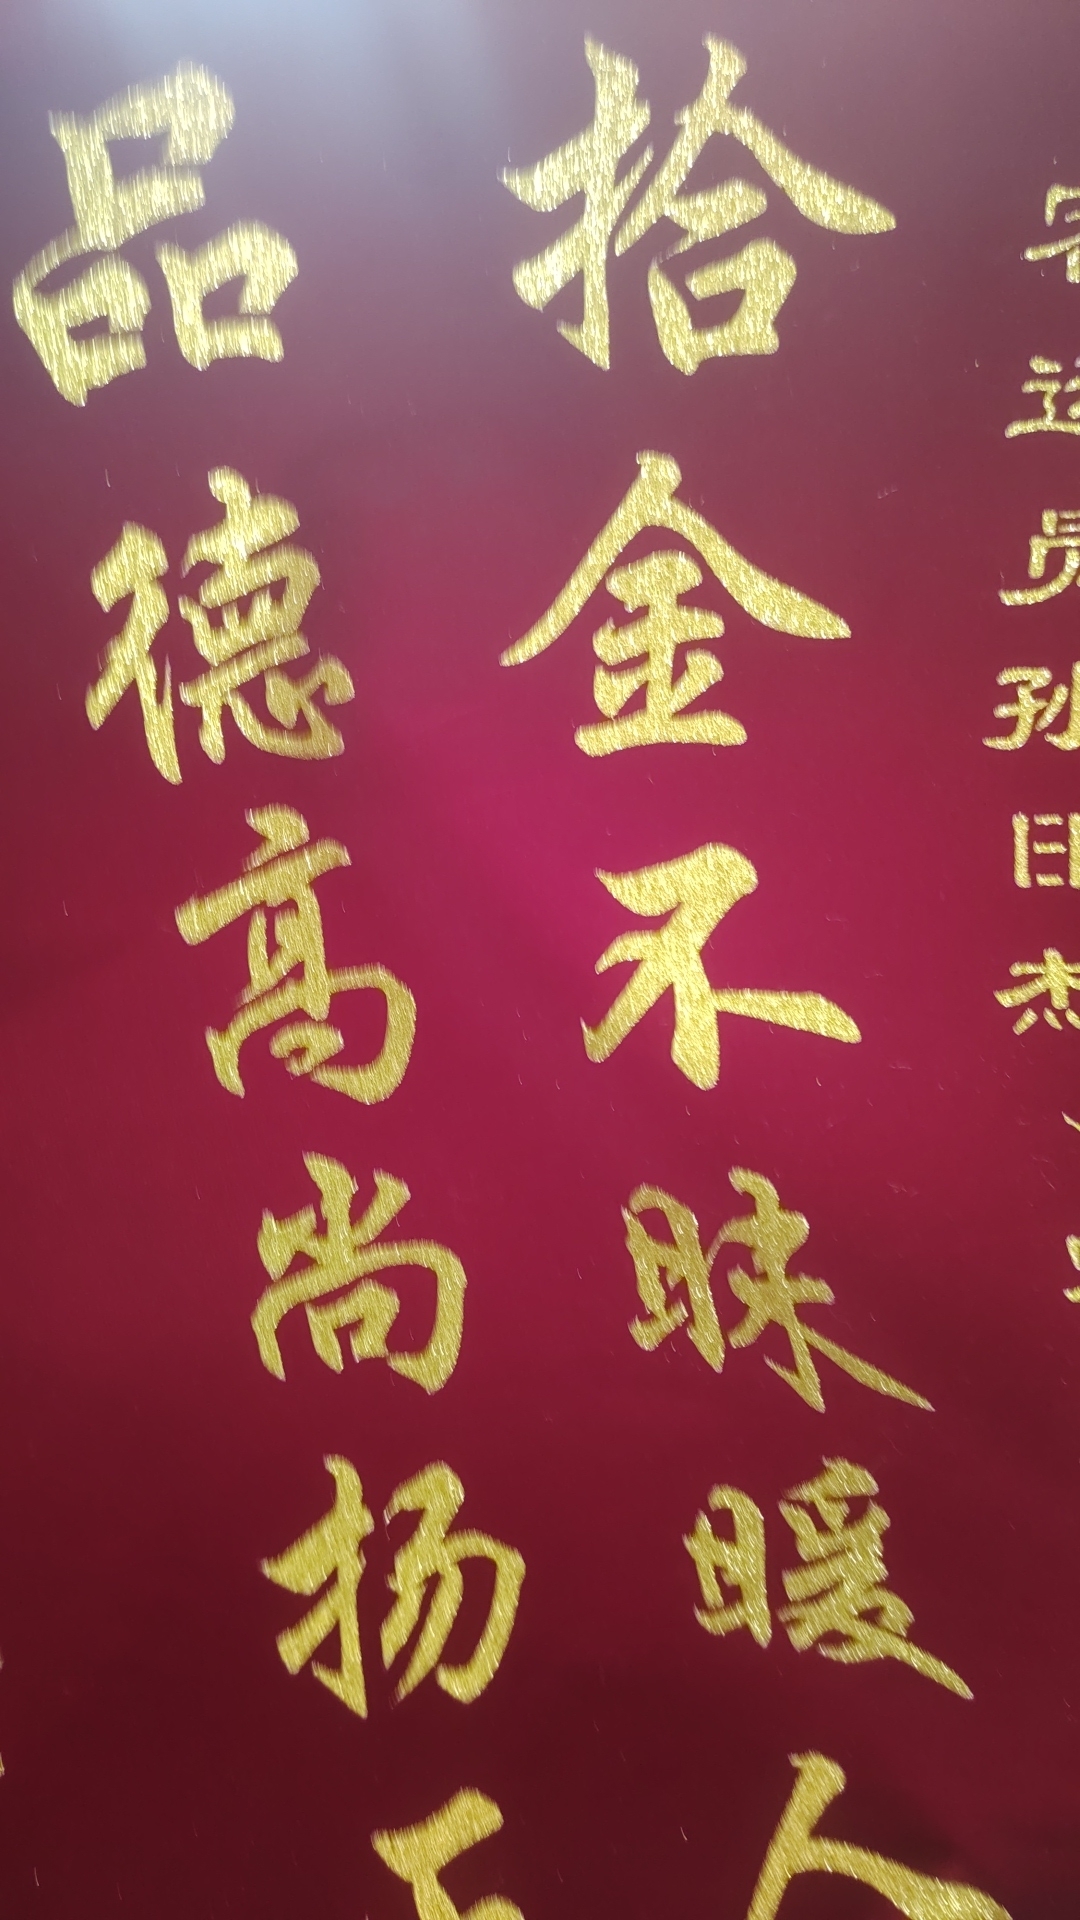 客运员孙田杰
拾金不昧暖人
品德高尚扬正